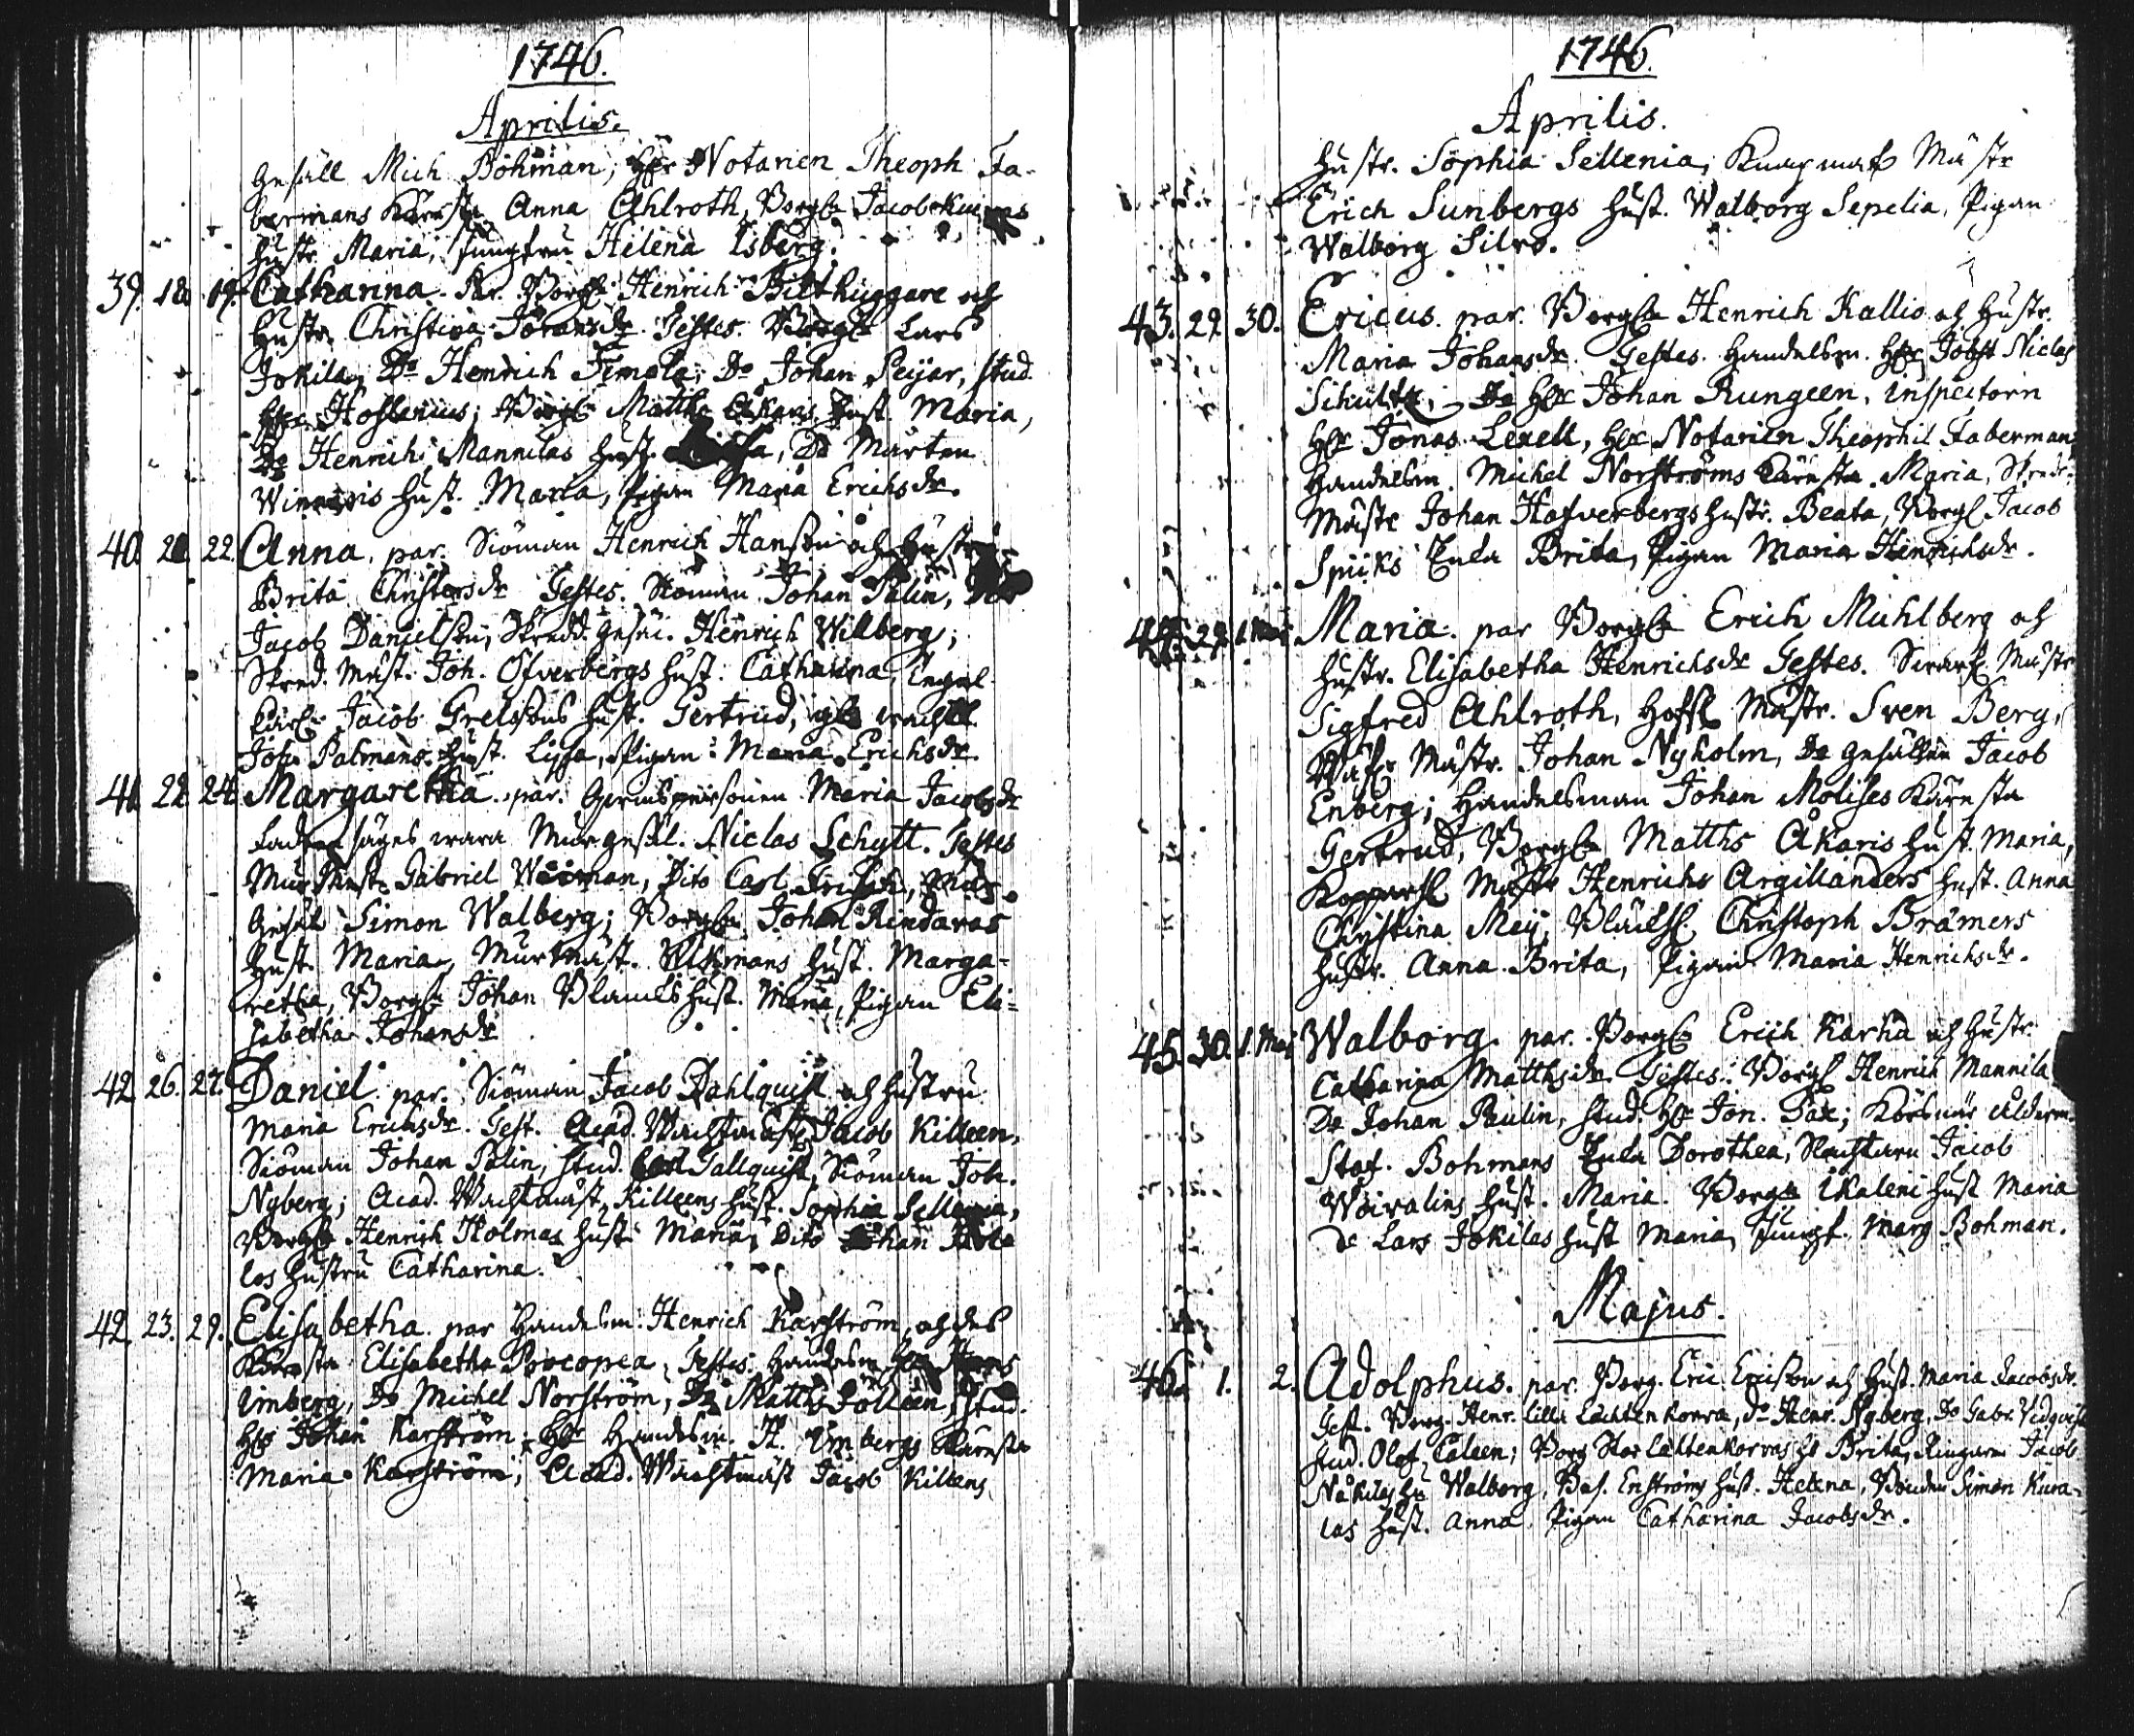 1746.
Aprilis.
Gesäll Mich Böhman, Hr Notarien Theoph Fa-
bermans Käresta Anna Ahlroth, Borg. Jacob
Hustr Maria, Jungfru Helena Isberg.
39. 18. 19. Catharina. Par. Borg. Henrich Bilthuggare och
Hustr. Christina Johansdr Testes. Borg. Lars
Jokila, Do Henrich Temola, Do Johan Peijar, stud.
Hr Hoslenius; Borg. Matths Åkaris Hust. Maria,
Do Henrich Mannilas Hust. Do Mårten
Hust. Maria, Pigan Maria Erichsdr.
40. 20. 22. Anna, par. Siöman Henrich Hanson och Hustr
Brita Christersdr Testes. Siöman Johan Palin, Do
Jacob Danielson, Skredd. Gesäl. Henrich Wilberg;
Skred. Mäst. Joh. Ofverbergs Hust. Catharina,
Jacob Grelssons Hust. Gertrud,
Joh. Palmans Hust. Lissa, Pigan Maria Erichsdr.
41. 22. 24. Margaretha. par. Maria Jacobsdr
Fadren säges wara Murgesäl. Niclas Schytt. Testes
Mur Mäst. Gabriel Dito Carl Mur
Gesäl Simon Walberg; Borg. Johan Rindaras
Hust. Maria, Murmäst. Hust. Marga-
retha, Borg. Johan Hust. Maria, Pigan Eli-
sabetha Johansdr
42. 26. 27. Daniel par. Siöman Jacob Dahlquist och Hustru
Maria Erichsdr. Test. Acad. Wachtmäst. Jacob Killeen,
Siöman Johan Palin, stud. Carl Tallquist, Siöman Joh.
Nyberg; Acad. Wachtmäst. Killeens Hust. Sophia Sellenia,
Borg. Henrich Holmas Hust. Maria, Dito Johan
los Hustru Catharina.
42. 23. 29. Elisabetha par Handelsm. Henrich Karström och des
Käresta Elisabetha Procopoea, Testes. Handelsm. Hr
Imberg, Do Michel Norström, Do Matths Jölleen, Stud.
Hr Johan Karström, Hr Handelsm. H. Imbergs Käresta
Maria Karström, Acad. Wachtmäst Jacob Killens
1746.
Aprilis.
Hustr. Sophia Sellenia, Mästr
Erich Sunbergs Hust. Walborg Sepelia, Pigan
Walborg Silvo.
43. 29. 30. Ericus. par. Borg. Henrich Kallio och Hustr.
Maria Johansdr. Testes. Handelsm. Hr Jobst Niclas
Schultz, Do Hr Johan Rungeen, Inspectorn
Hr Jonas Lexell, Hr Notarien Theophil Faberman,
Handelsm. Michel Norströms Käresta Maria, Skredd.
Mästr Johan Hofverbergs Hustr. Beata, Borg. Jacob
Spiiks Enka Brita, Pigan Maria Henrichsdr.
44. 29. 1. Maji Maria. par Borg. Erich Muhlberg och
Hustr. Elisabetha Henrichsdr Testes. Swarf. Mästr
Sigfred Ahlroth, Hofsl. Mästr. Sven Berg,
Mästr. Johan Nyholm, Do Gesällen Jacob
Enberg; Handelsman Johan Molises Käresta
Gertrud, Borg. Matths Åkaris Hust. Maria,
Kopparsl. Mästr Henrichs Argillanders Hust. Anna
Christina Meij, Christoph Brämers
Hustr. Anna Brita, Pigan Maria Henrichsdr.
45. 30. 1. Maj Walborg. par. Borg. Erich Karha och Hustr.
Catharina Matthsdr. Testes. Borg. Henrich Mannila
Do Johan Paulin, stud. Hr Jon. Pax; Körsnär Alderm.
Staf. Bohmans Enka Dorothea, Jacob
Woivalins Hust. Maria. Borg. Ikaleni Hust Maria
Do Lars Jokilas Hust Maria, Jungf. Marg Bohman.
Majus.
46. 1. 2. Adolphus. par. Borg. Eric Ericson och Hust. Maria Jacobsdr.
Test. Borg. Henr. Lilla Lächtenkorva, Do Henr. Nyberg, Do Gabr. Vidqvist
stud. Olof Caleen; Borg Stor Lächtenkorvas H. Brita, Ringaren Jacob
Nåkilas Hu Walborg, Enströms Hust. Helena, Bonden Simon Kura-
las Hust. Anna, Pigan Catharina Jacobsdr.